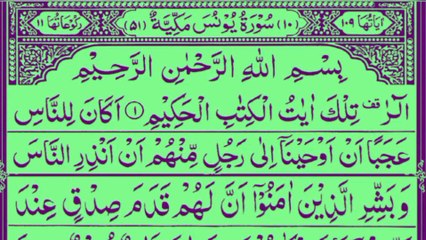 اٰیَاتُهَا ۱۰۹ (۱۰) سُوْرَةُ یُوْنُسَ مَكِّیَّةٌ (۵۱) رُكُوْعَاتُهَا ۱۱
بِسْمِ اللّٰهِ الرَّحْمٰنِ الرَّحِیْمِ
الٓرٰ قف تِلْكَ اٰیٰتُ الْكِتٰبِ الْحَكِیْمِ ۝۱ اَكَانَ لِلنَّاسِ
عَجَبًا اَنْ اَوْحَیْنَاۤ اِلٰى رَجُلٍ مِّنْهُمْ اَنْ اَنْذِرِ النَّاسَ
وَ بَشِّرِ الَّذِیْنَ اٰمَنُوْۤا اَنَّ لَهُمْ قَدَمَ صِدْقٍ عِنْدَ